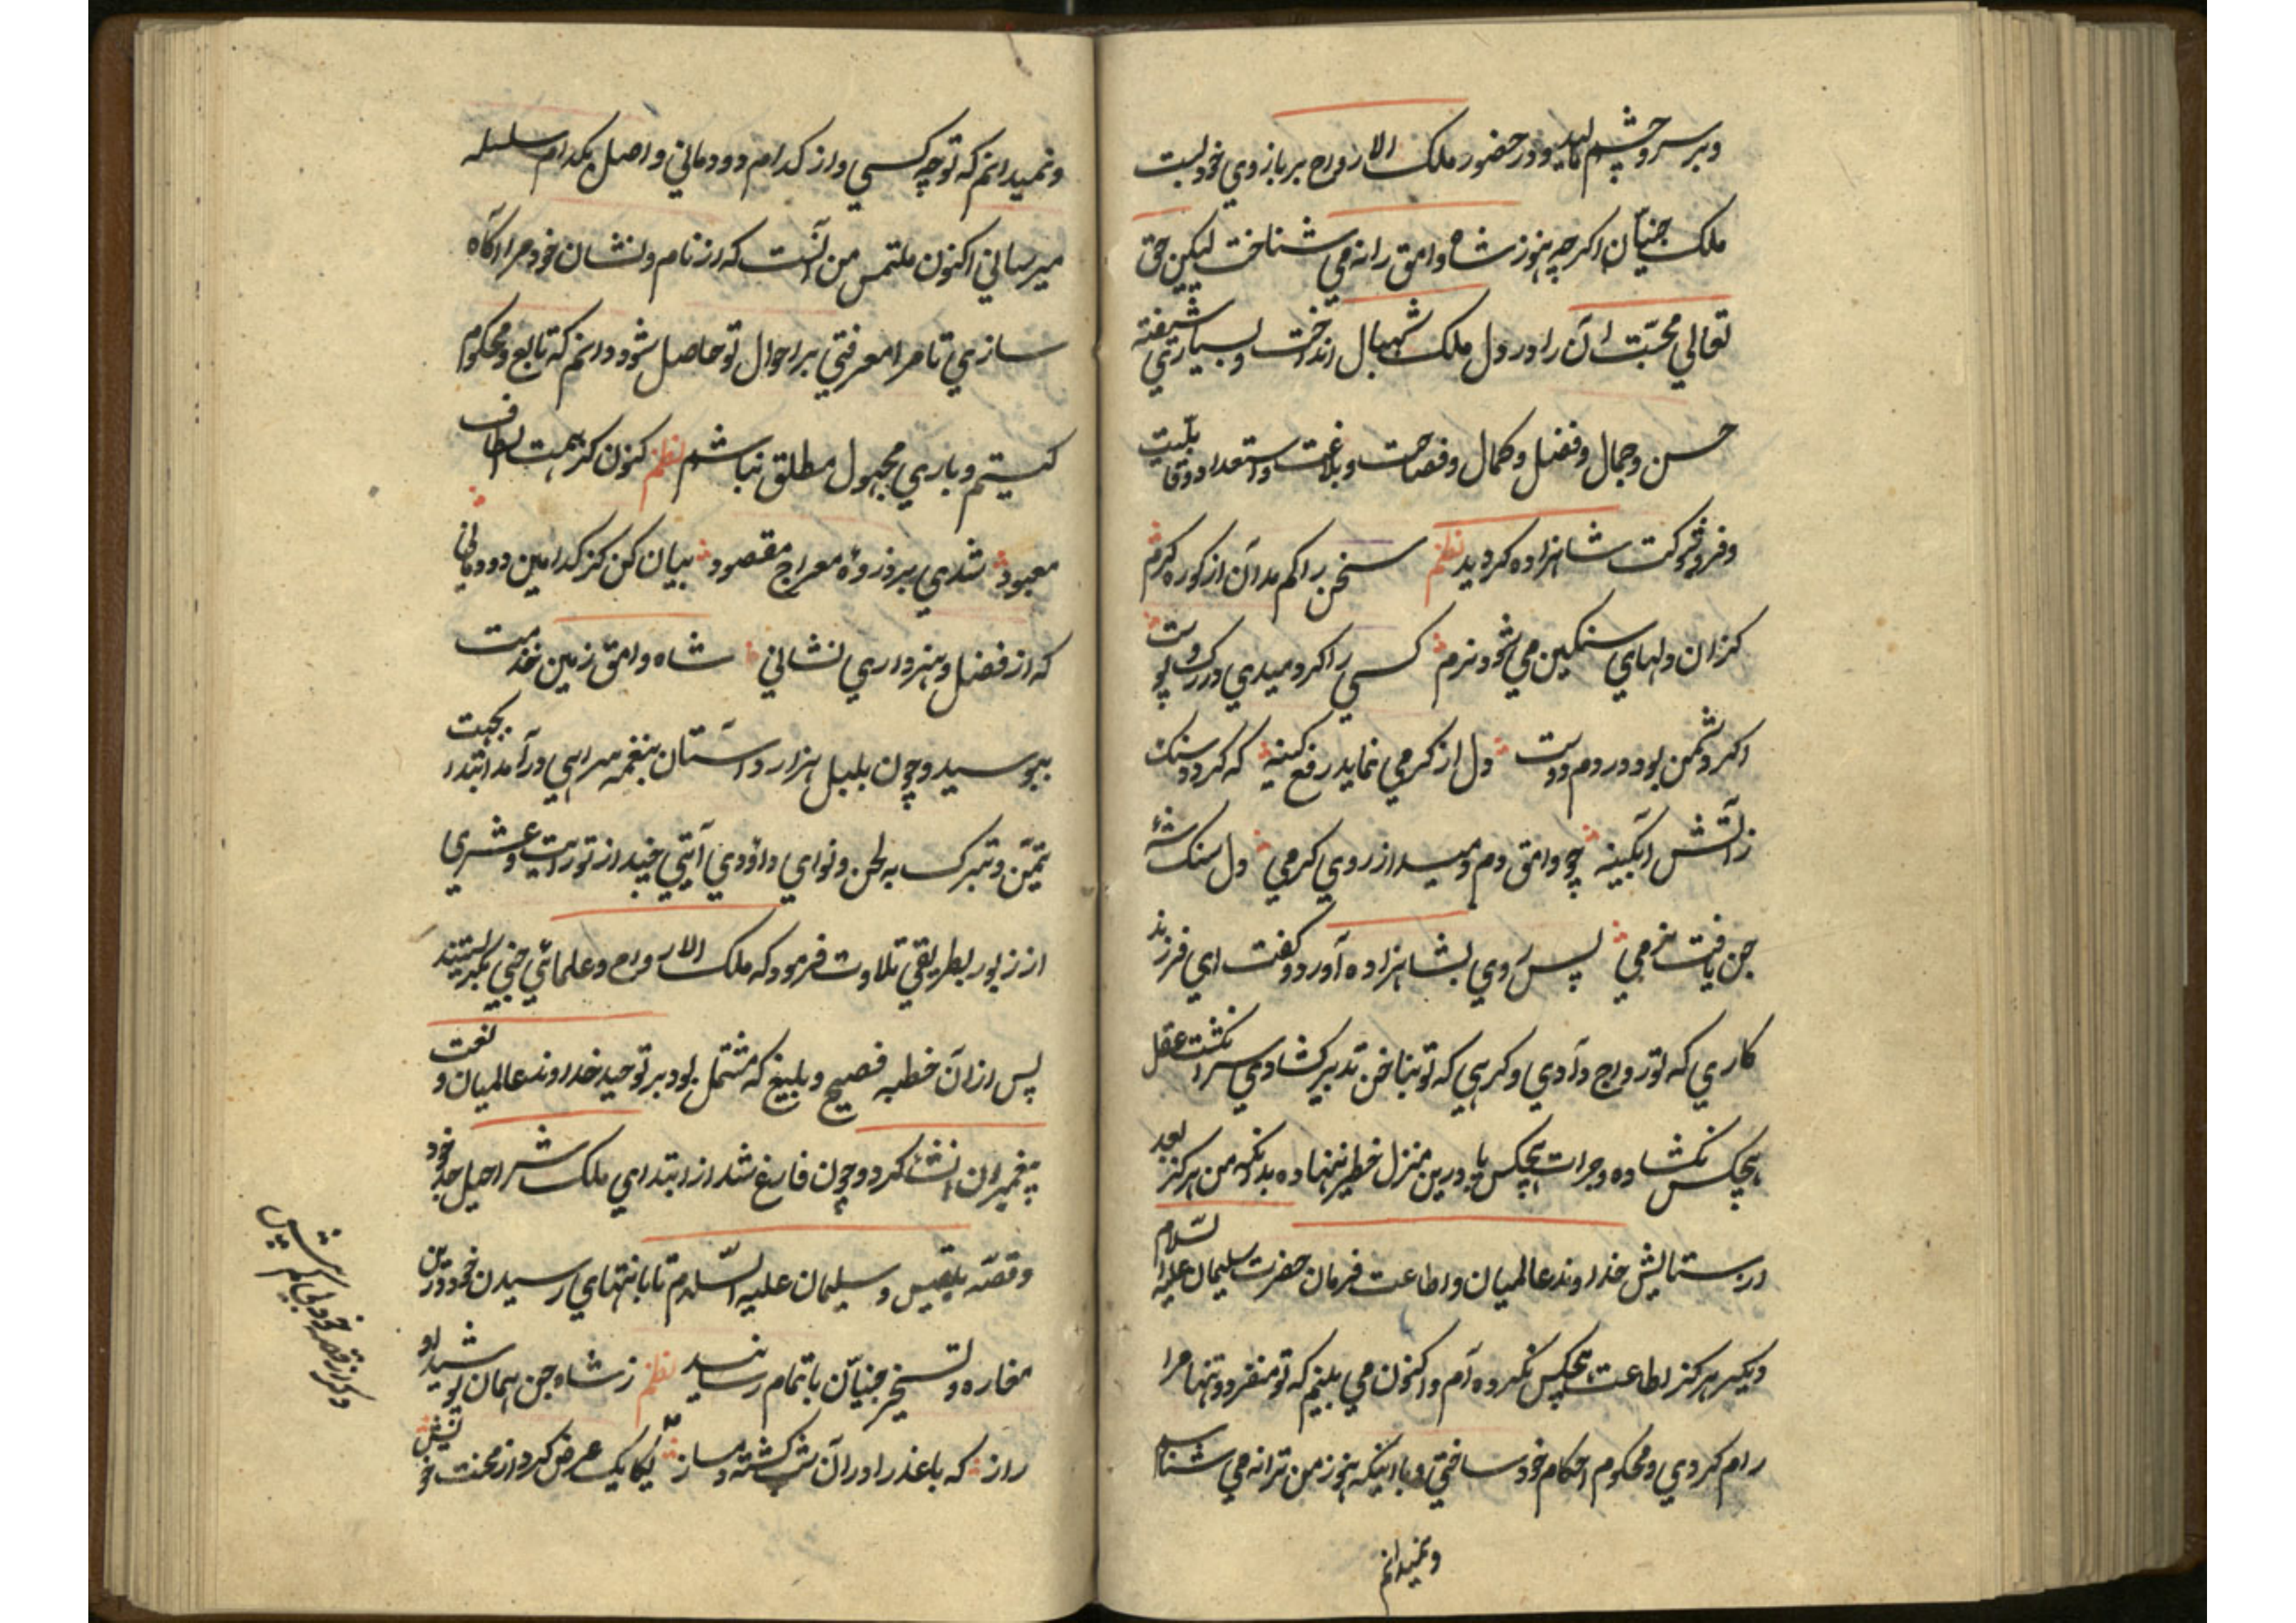 وبر سر و چشم مالید و در حضور ملک الارواح بر بازوي خود بست
ملک جنیّان اکرچه هنوز شاه وامق را نه می شناخت لیکن حق
تعالي محبّت آن را در دل ملک شهبال انداخت و بسیاری شیفته
حسن وجمال وفضل وکمال وفصاحت وبلاغت واستعداد وقابلیت
وفر وشوکت شاهزاده کردید نظم سخن را کم مدان از کوره کرم
کزان دلهاي سنکین می شود نرم کسی را کر دمیدی در رک و پوست
اکر دشمن بود در دم دوست دل از کرمی نماید رفع کینه که کردد سنک
ز آتش آبکینه چو وامق دم دمید از روی اکرمی دل سنک شه
جن یافت نرمی پس روی بشاهزاده آورد و کفت اي فرزند
کاري که تو رواج دادي وکرهي که تو بناخن تدبیر کشادي سر انکشت عقل
هیچکس نکشاده وجرات هیچکس پا درین منزل خطیر ننهاده بدانکه من هرکز بعد
از ستایش خداوند عالمیان واطاعت فرمان حضرت سلیمان علیه السّلام
دیکر هرکز اطاعت هیچکس نکرده ام واکنون می بینم که تو منفرد وتنها مرا
رام کردي ومحکوم احکام خود ساختي وبا اینکه هنوز من ترا نه می شناسم
ونمیدانم
ونمیدانم که تو چه کسي واز کدام دودماني واصل بکدام سلسله
میرساني اکنون ملتمس من آنست که از نام ونشان خود مرا آکاه
سازي تا مرا معرفتي بر احوال تو حاصل شود ودانم که تابع ومحکوم
کیستم وباري مجهول مطلق نباشم نظم کنون کز همت الطاف
معبود شدي بر ذروۀ معراج مقصود بیان کن کز کدامین دودماني
که از فضل وهنر داري نشاني شاه وامق زمین خدمت
ببوسید وچون بلبل هزار داستان بنغمه سرایي درآمد ابتداء بجهت
تیمّن وتبرک به لحن ونواي داؤدي آیتي چند از توریت وعشري
از زبور بطریقي تلاوت فرمود که ملک الارواح وعلمائي جنّي بکریستند
پس از آن خطبه فصیح وبلیغ که مشتمل بود بر توحید خداوند عالمیان و نعت
پیغمبران انشا کرد وچون فارغ شد از ابتداي ملک شراحیل جد خود
وقصّه بلقیس وسلیمان علیه السّلام تا بانتهاي رسیدن خود درین
مغاره وتسخیر جنیّان باتمام رسانید نظم ز شاه جن همان پوشیده
راز که با عذرا در آن شب کشته دمساز یکایک عرض کرد از محنت خویش